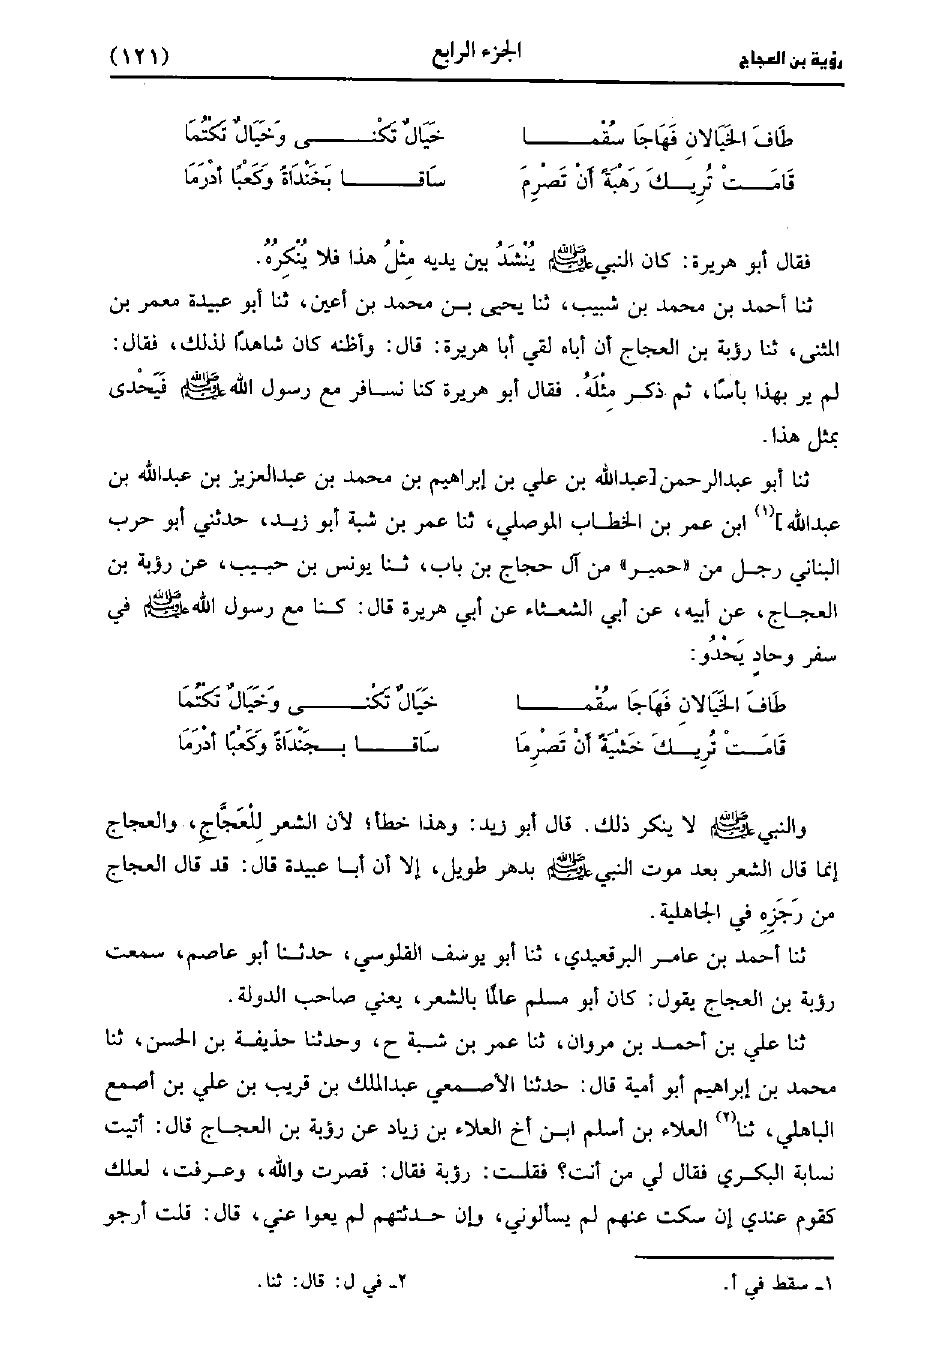 رؤبة بن العجاج الجزء الرابع (١٢١)
طَافَ الخَيَالَانِ فَهَاجَا سُقْمـــا خَيَالٌ تَكْنـــى وَخَيَالٌ تَكْتُمَا
قَامَـــتْ تُرِيـــكَ رَهْبَةً أَنْ تَصْرِمِ سَاقـــا بَخَنْدَاةً وَكَعْبًا أَدْرَمَا
فقال أبو هريرة: كان النبي ﷺ يُنْشَدُ بين يديه مِثْلُ هذا فلا يُنْكِرُهُ.
ثنا أحمد بن محمد بن شبيب، ثنا يحيى بن محمد بن أعين، ثنا أبو عبيدة معمر بن
المثنى، ثنا رؤبة بن العجاج أن أباه لقي أبا هريرة: قال: وأظنه كان شاهدًا لذلك، فقال:
لم ير بهذا بأسًا، ثم ذكر مِثْلَهُ. فقال أبو هريرة كنا نسافر مع رسول الله ﷺ فَيَحْدى
بمثل هذا.
ثنا أبو عبدالرحمن [عبدالله بن علي بن إبراهيم بن محمد بن عبدالعزيز بن عبدالله بن
عبدالله](١) ابن عمر بن الخطاب الموصلي، ثنا عمر بن شبة أبو زيد، حدثني أبو حرب
البناني رجل من «حمير» من آل حجاج بن باب، ثنا يونس بن حبيب، عن رؤبة بن
العجاج، عن أبيه، عن أبي الشعثاء عن أبي هريرة قال: كنا مع رسول الله ﷺ في
سفر وحادٍ يَحْدُو:
طَافَ الخَيَالَانِ فَهَاجَا سُقْمـــا خَيَالٌ تَكْنـــى وَخَيَالٌ تَكْتُمَا
قَامَـــتْ تُرِيـــكَ خَشْيَةً أَنْ تَصْرِمَا سَاقـــا بـــجَنْدَاةً وَكَعْبًا أَدْرَمَا
والنبي ﷺ لا ينكر ذلك. قال أبو زيد: وهذا خطأ؛ لأن الشعر لِلْعَجَّاجِ، والعجاج
إنما قال الشعر بعد موت النبي ﷺ بدهر طويل، إلا أن أبا عبيدة قال: قد قال العجاج
من رَجَزِهِ في الجاهلية.
ثنا أحمد بن عامر البرقعيدي، ثنا أبو يوسف القلوسي، حدثنا أبو عاصم، سمعت
رؤبة بن العجاج يقول: كان أبو مسلم عالمًا بالشعر، يعني صاحب الدولة.
ثنا علي بن أحمد بن مروان، ثنا عمر بن شبة ح، وحدثنا حذيفة بن الحسن، ثنا
محمد بن إبراهيم أبو أمية قال: حدثنا الأصمعي عبدالملك بن قريب بن علي بن أصمع
الباهلي، ثنا(٢) العلاء بن أسلم ابن أخ العلاء بن زياد عن رؤبة بن العجاج قال: أتيت
نسابة البكري فقال لي من أنت؟ فقلت: رؤبة فقال: قصرت والله، وعرفت، لعلك
كقوم عندي إن سكت عنهم لم يسألوني، وإن حدثتهم لم يعوا عني، قال: قلت أرجو
١- سقط في أ. ٢- في ل: قال: ثنا.